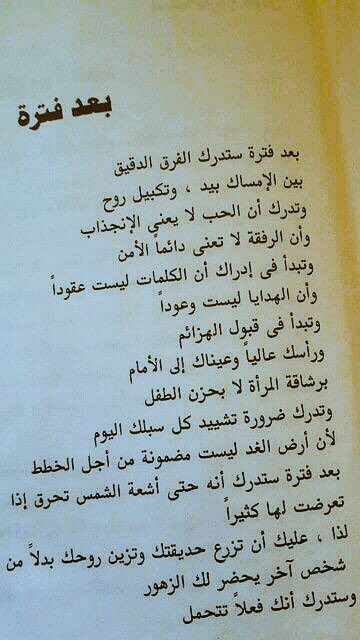 بعد فترة
بعد فترة ستدرك الفرق الدقيق
بين الإمساك بيد ، وتكبيل روح
وتدرك أن الحب لا يعنى الإنجذاب
وأن الرفقة لا تعنى دائماً الأمن
وتبدأ فى إدراك أن الكلمات ليست عقوداً
وأن الهدايا ليست وعوداً
وتبدأ فى قبول الهزائم
ورأسك عالياً وعيناك إلى الأمام
برشاقة المرأة لا بحزن الطفل
وتدرك ضرورة تشييد كل سبلك اليوم
لأن أرض الغد ليست مضمونة من أجل الخطط
بعد فترة ستدرك أنه حتى أشعة الشمس تحرق إذا
تعرضت لها كثيراً
لذا ، عليك أن تزرع حديقتك وتزين روحك بدلاً من
شخص آخر يحضر لك الزهور
وستدرك أنك فعلاً تتحمل